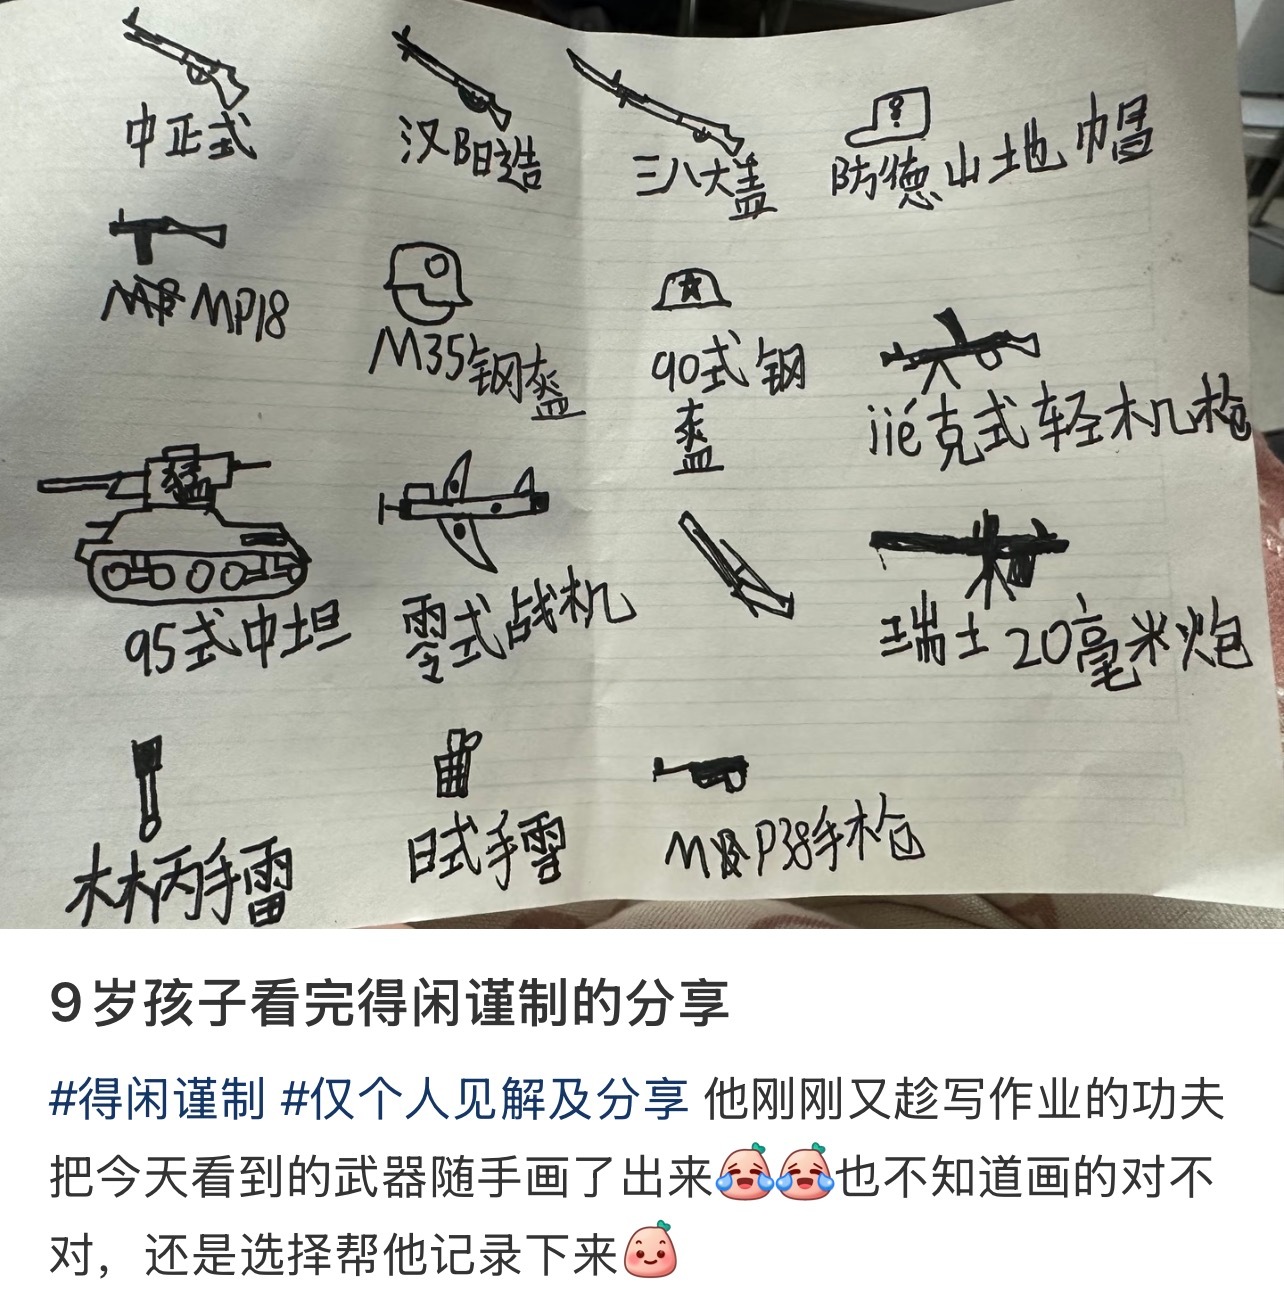 中正式
汉阳造
三八大盖
防德山地帽
MP18
M35钢盔
90式钢
盔
jié克式轻机枪
猛
95式中坦
零式战机
瑞士20毫米炮
木林丙手雷
日式手雷
P38手枪
9岁孩子看完得闲谨制的分享
#得闲谨制 #仅个人见解及分享 他刚刚又趁写作业的功夫
把今天看到的武器随手画了出来😂😂也不知道画的对不
对，还是选择帮他记录下来